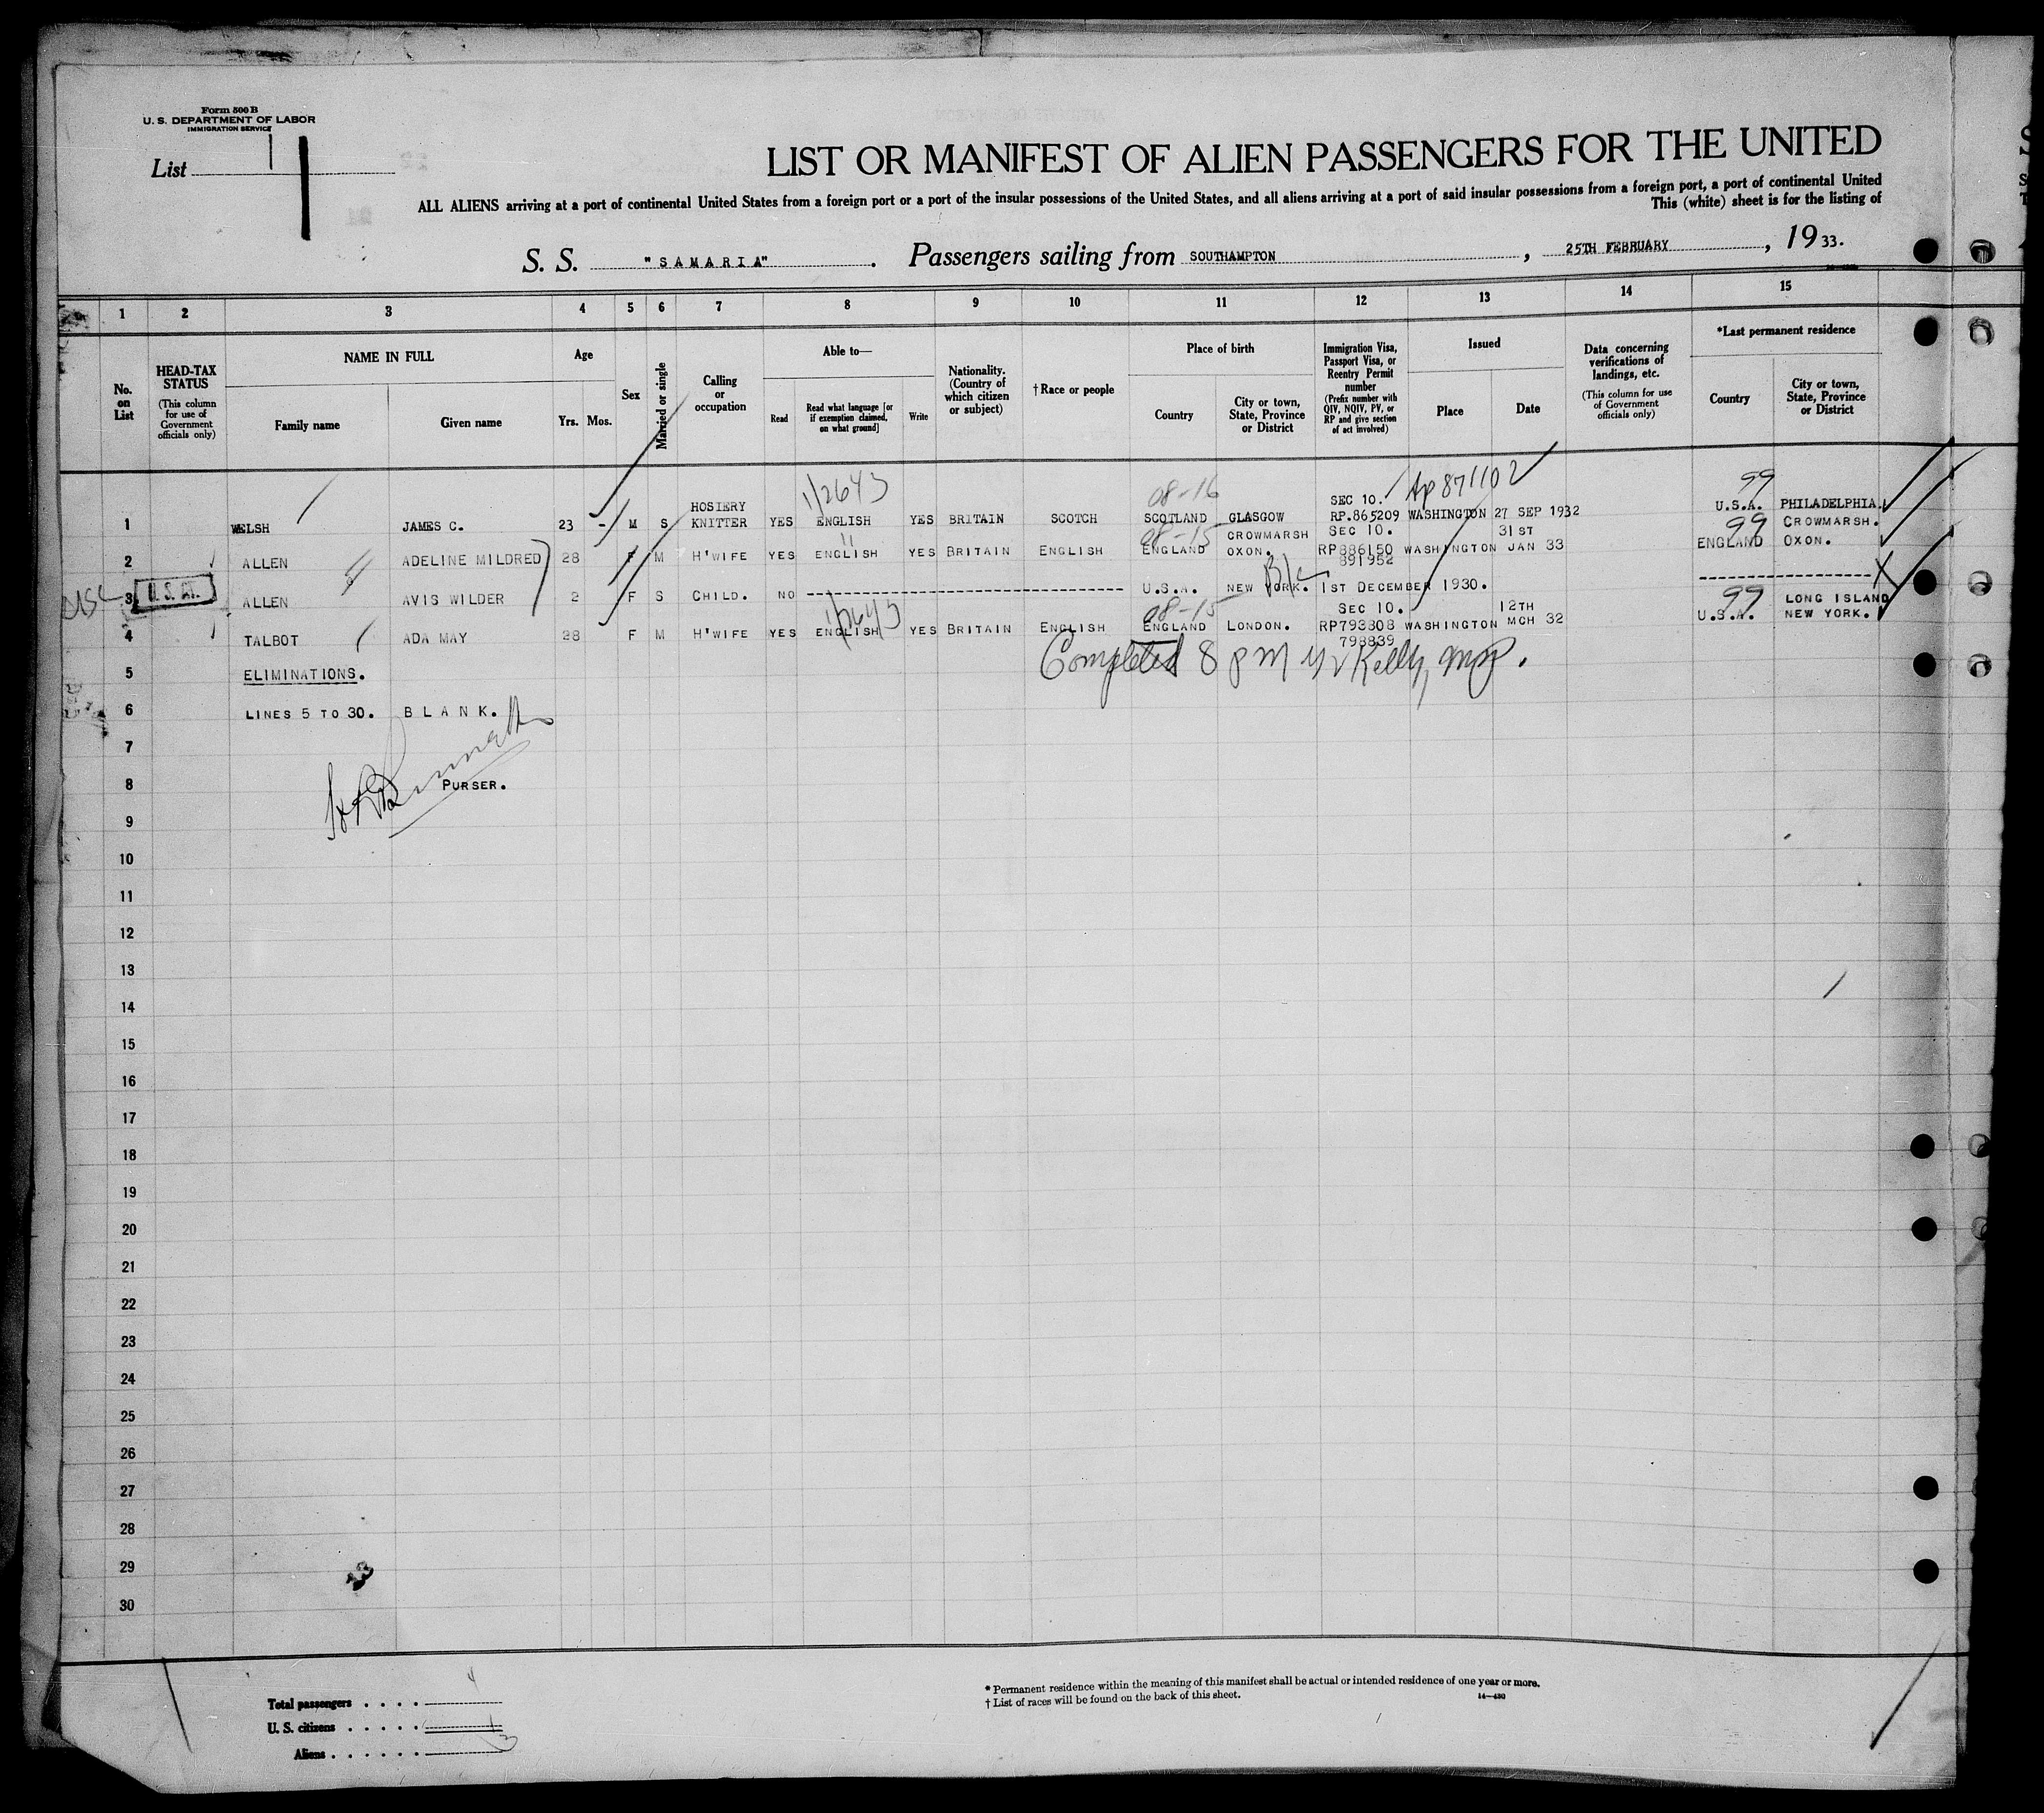 Form 500 B
U. S. DEPARTMENT OF LABOR
IMMIGRATION SERVICE
List 1
LIST OR MANIFEST OF ALIEN PASSENGERS FOR THE UNITED
ALL ALIENS arriving at a port of continental United States from a foreign port or a port of the insular possessions of the United States, and all aliens arriving at a port of said insular possessions from a foreign port, a port of continental United
This (white) sheet is for the listing of
S. S. "SAMARIA". Passengers sailing from SOUTHAMPTON, 25TH FEBRUARY, 1933.
1 2 3 4 5 6 7 8 9 10 11 12 13 14 15
No. on List
HEAD-TAX STATUS (This column for use of Government officials only)
NAME IN FULL
Family name
Given name
Age
Yrs. Mos.
Sex
Married or single
Calling or occupation
Able to—
Read
Read what language [or if exemption claimed, on what ground]
Write
Nationality. (Country of which citizen or subject)
†Race or people
Place of birth
Country
City or town, State, Province or District
Immigration Visa, Passport Visa, or Reentry Permit number (Prefix number with QIV, NQIV, PV, or RP and give section of act involved)
Issued
Place
Date
Data concerning verifications of landings, etc. (This column for use of Government officials only)
*Last permanent residence
Country
City or town, State, Province or District
1/2643 08-16 SEC 10. Ap 871102 99
1 WELSH JAMES C. 23 - M S HOSIERY KNITTER YES ENGLISH YES BRITAIN SCOTCH SCOTLAND GLASGOW RP.865209 WASHINGTON 27 SEP 1932 U.S.A. PHILADELPHIA.
11 08-15 SEC 10. 99
2 ALLEN ADELINE MILDRED 28 F M H'WIFE YES ENGLISH YES BRITAIN ENGLISH ENGLAND CROWMARSH OXON. RP886150 WASHINGTON 31ST JAN 33 ENGLAND CROWMARSH. OXON.
891952
DISC U. S. CIT. B/C
3 ALLEN AVIS WILDER 2 F S CHILD. NO U.S.A. NEW YORK. 1ST DECEMBER 1930.
1/2643 08-15 SEC 10. 99
4 TALBOT ADA MAY 28 F M H'WIFE YES ENGLISH YES BRITAIN ENGLISH ENGLAND LONDON. RP793808 WASHINGTON 12TH MCH 32 U.S.A. LONG ISLAND NEW YORK.
798839
5 ELIMINATIONS. Completed 8 PM Kelly, Insp.
6 LINES 5 TO 30. BLANK.
7
8 PURSER.
9
10
11
12
13
14
15
16
17
18
19
20
21
22
23
24
25
26
27
28
29
30
Total passengers . . . . 4
U. S. citizens . . . . . 1
Aliens . . . . . . 3
* Permanent residence within the meaning of this manifest shall be actual or intended residence of one year or more.
† List of races will be found on the back of this sheet. 14—430